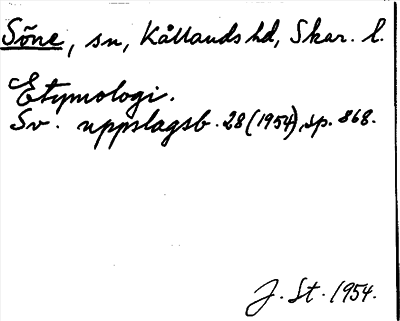 Sõne, sn, Kållands hd, Skar. l.
Etymologi.
Sv. uppslagsb. 28 (1954), sp. 868.
J. St. 1954.